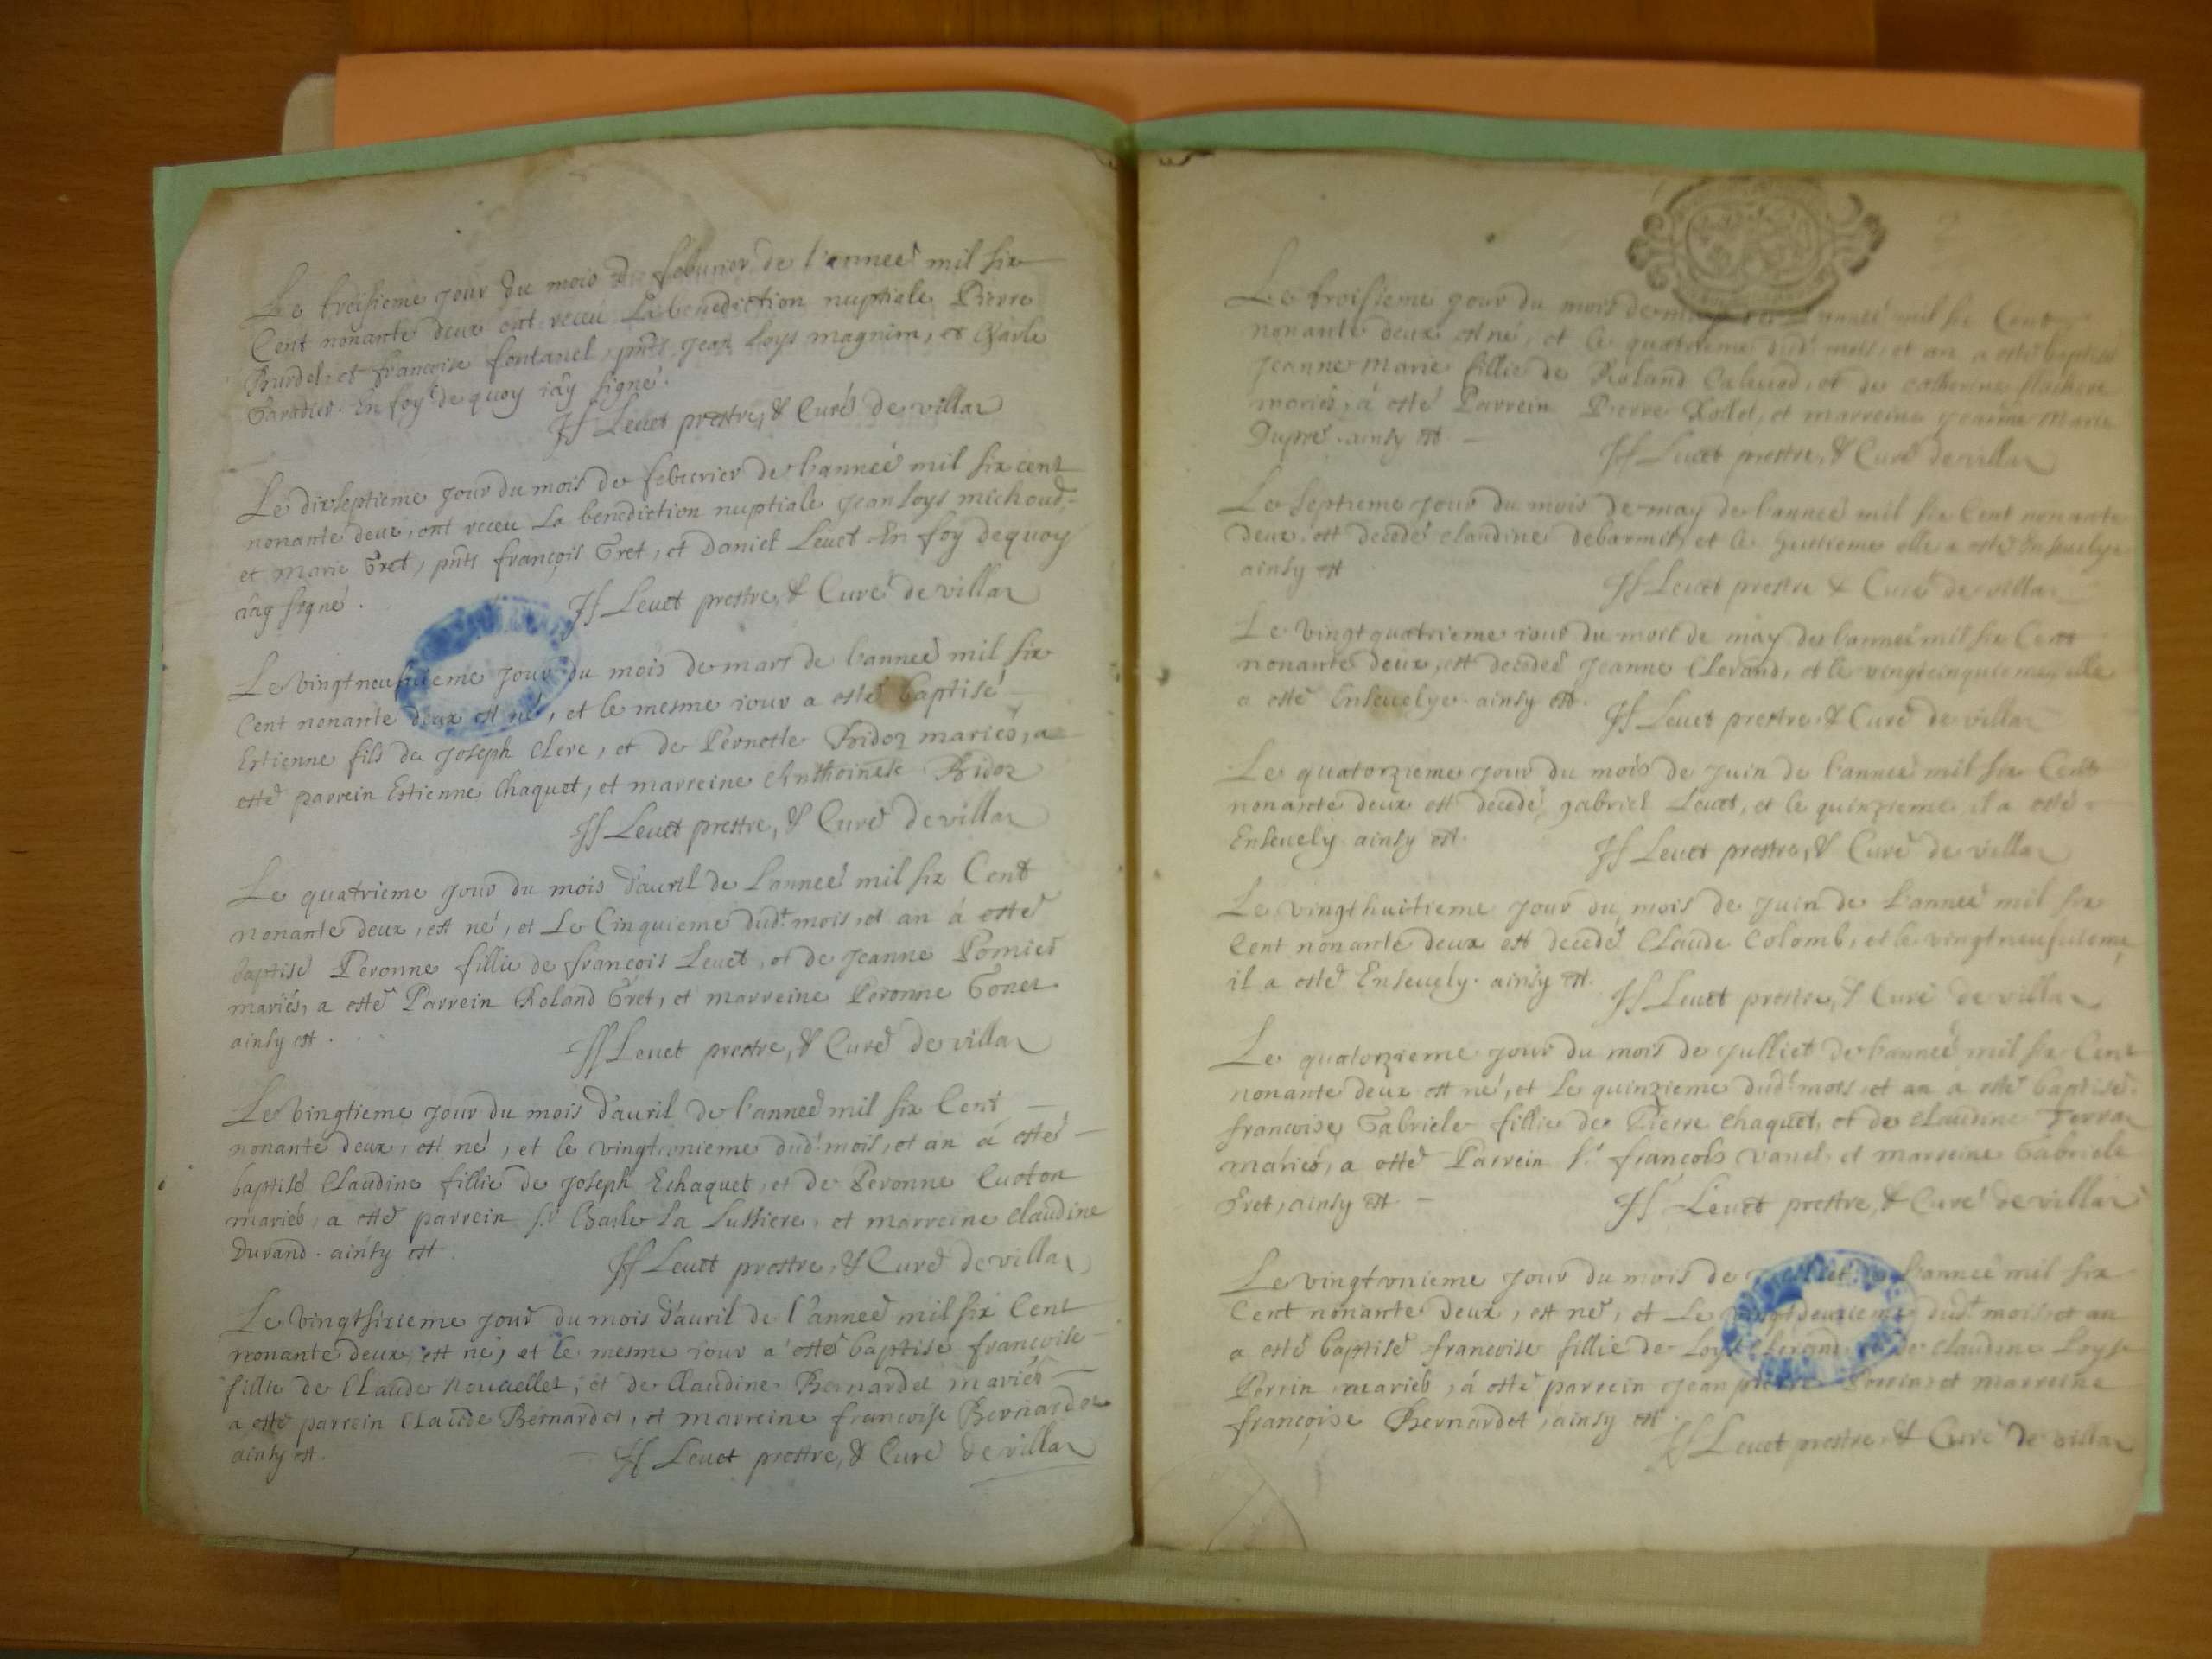 Le troisieme jour du mois de feburier de l'anneé mil six
Cent nonante deux ont receu La benediction nuptiale Pierre
Burdel, et françoise fontanel, pnts Jean Loys magnim, et Charle
Paradis. En foy de quoy iáy signé.
Levet prestre, & Curé de villar
Le dixseptieme jour du mois de feburier de l'anneé mil six cent
nonante deux, ont receu La benediction nuptiale Jean Loys michoud,
et Marie Gret, pnts françois Gret, et Daniel Levet En foy de quoy
iáy signé.
Levet prestre, & Curé de villar
Le vingt neufuieme jour du mois de mars de l'anneé mil six
Cent nonante deux est né, et le mesme iour a esté baptisé
Estienne fils de Joseph Clerc, et de Pernette Bidoz mariés, a
esté parrein Estienne Chaquet, et marreine Anthoinete Bidoz
Levet prestre, & Curé de villar
Le quatrieme jour du mois d'auril de L'anneé mil six Cent
nonante deux, est né, et Le Cinquieme dudt mois, et an á esté
baptisé Peronne fillie de françois Levet, et de Jeanne Pomier
mariés, a esté Parrein Roland Gret, et marreine Peronne Gonet
ainsy est.
Levet prestre, & Curé de villar
Le vingtieme jour du mois d'auril de l'anneé mil six Cent
nonante deux, est né, et le vingtunieme dudt mois, et an á esté
baptisé Claudine fillie de Joseph Echaquet, et de Peronne Cuoton
mariés, a esté parrein Sr Charle La Lussiere, et marreine Claudine
Durand. ainsy est.
Levet prestre, & Curé de villar
Le vingtsixieme jour du mois d'auril de l'anneé mil six Cent
nonante deux, est né, et le mesme iour a esté baptisé françoise
fillie de Claude Nouvellet, et de Claudine Bernardet mariés
a esté parrein Claude Bernardet, et marreine françoise Bernardet
ainsy est.
Levet prestre, & Curé de villar
Le troisieme jour du mois de may de l'anneé mil six Cent
nonante deux est né, et le quatrieme dudt mois, et an a esté baptisé
Jeanne Marie fillie de Roland Caleuod, et de Catherine
mariés, á esté Parrein Pierre Rollet, et marreine Jeanne Marie
Dupré. ainsy est.
Levet prestre, & Curé de villar
Le septieme jour du mois de may de l'anneé mil six Cent nonante
deux, est decedé Claudine debarmit, et le huitieme elle a esté Enseuelye
ainsy est
Levet prestre & Curé de villar
Le vingtquatrieme iour du mois de may de l'anneé mil six Cent
nonante deux, est decedeé Jeanne Clerand, et le vingtcinquieme elle
a esté Enseuelye. ainsy est.
Levet prestre & Curé de villar
Le quatorzieme jour du mois de juin de l'anneé mil six Cent
nonante deux est decedé gabriel Levet, et le quinzieme il a esté
Enseuely ainsy est.
Levet prestre, & Curé de villar
Le vingthuitieme jour du mois de juin de l'anneé mil six
Cent nonante deux est decedé Claude Colomb, et le vingtneufuieme
il a esté Enseuely. ainsy est.
Levet prestre, & Curé de villar
Le quatorzieme jour du mois de julliet de l'anneé mil six Cent
nonante deux est né, et Le quinzieme dudt mois, et an a esté baptisé
francoise Gabriele fillie de Pierre Chaquet, et de Claudine Ferra
mariés, a esté Parrein Sr francois vanel, et marreine Gabriele
Gret, ainsy est.
Levet prestre, & Curé de villar
Le vingtunieme jour du mois de julliet de l'anneé mil six
Cent nonante deux, est né, et Le vingtdeuxieme dudt mois, et an
a esté baptisé francoise fillie de Loys Clerand, et de Claudine Loyse
Perrin mariés, á esté parrein Jean pierre Perrin, et marreine
françoise Bernardet, ainsy est
Levet prestre, & Curé de villar